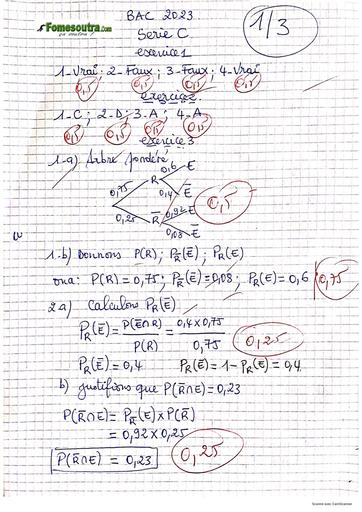 BAC 2023
1/3
Fomesoutra.com
Serie C
exercice 1
1-Vrai; 2-Faux; 3-Faux; 4-Vrai
0,5 0,5 0,5 0,5
exercice 2
1-C; 2-D; 3-A; 4-A
0,5 0,5 0,5 0,5
exercice 3
1-a) Arbre pondéré
0,75 R 0,6 E
0,4 E̅
0,25 R̅ 0,92 E
0,08 E̅
0,5
1.b) Donnons P(R); P_R̅(E̅); P_R(E)
ona: P(R) = 0,75; P_R̅(E̅) = 0,08; P_R(E) = 0,6
0,75
2 a) Calculons P_R(E̅)
P_R(E̅) = P(E̅∩R)/P(R) = 0,4 x 0,75/0,75
0,25
P_R(E̅) = 0,4 P_R(E̅) = 1 - P_R(E) = 0,4
b) justifions que P(R̅∩E) = 0,23
P(R̅∩E) = P_R̅(E) x P(R̅)
= 0,92 x 0,25
P(R̅∩E) = 0,23
0,25
Scanné avec CamScanner